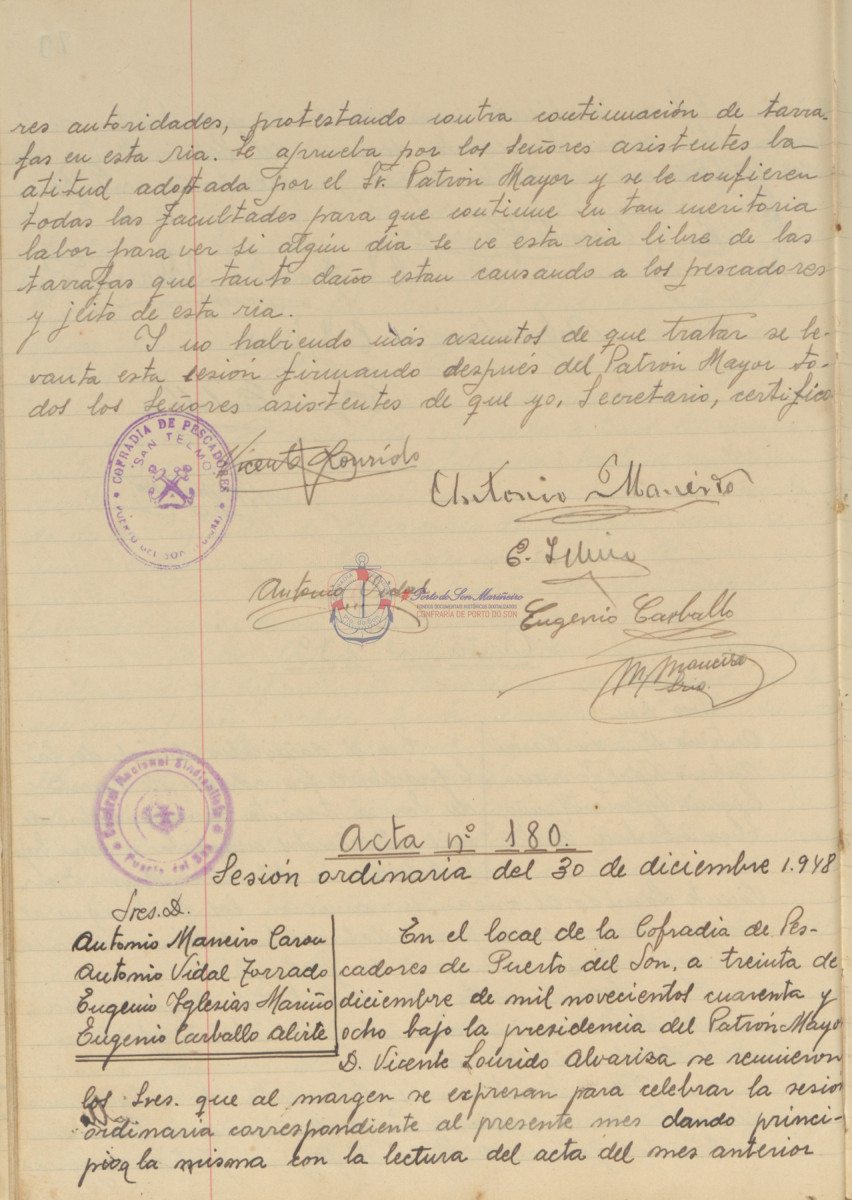 res autoridades, protestando contra continuación de tarra-
fas en esta ria. Se aprueba por los Señores asistentes la
atitud adoptada por el Sr. Patrón Mayor y se le confieren
todas las facultades para que continue en tan meritoria
labor para ver si algún dia se ve esta ria libre de las
tarrafas que tanto daño estan causando a los pescadores
y jeito de esta ria.
Y no habiendo más asuntos de que tratar se le-
vanta esta sesión firmando después del Patrón Mayor to-
dos los Señores asistentes de que yo, Secretario, certifico
COFRADIA DE PESCADORES
"SAN TELMO"
PUERTO DEL SON
Vicente Lourido
Antonio Maneiro
Antonio Vidal
Porto do Son Mariñeiro
FONDOS DOCUMENTAIS HISTÓRICOS DIXITALIZADOS
CONFRARÍA DE PORTO DO SON
Eugenio Carballo
M. Maneiro
Srio.
Central Nacional Sindicalista
Puerto del Son
Acta nº 180.
Sesión ordinaria del 30 de diciembre 1.948
Sres. D.
Antonio Maneiro Carou
Antonio Vidal Torrado
Eugenio Iglesias Mariño
Eugenio Carballo Alirte
En el local de la Cofradia de Pes-
cadores de Puerto del Son, a treinta de
diciembre de mil novecientos cuarenta y
ocho bajo la presidencia del Patrón Mayo
D. Vicente Lourido Alvariza se reunieron
los Sres. que al margen se expresan para celebrar la sesion
ordinaria correspondiente al presente mes dando princi-
pio a la misma con la lectura del acta del mes anterior